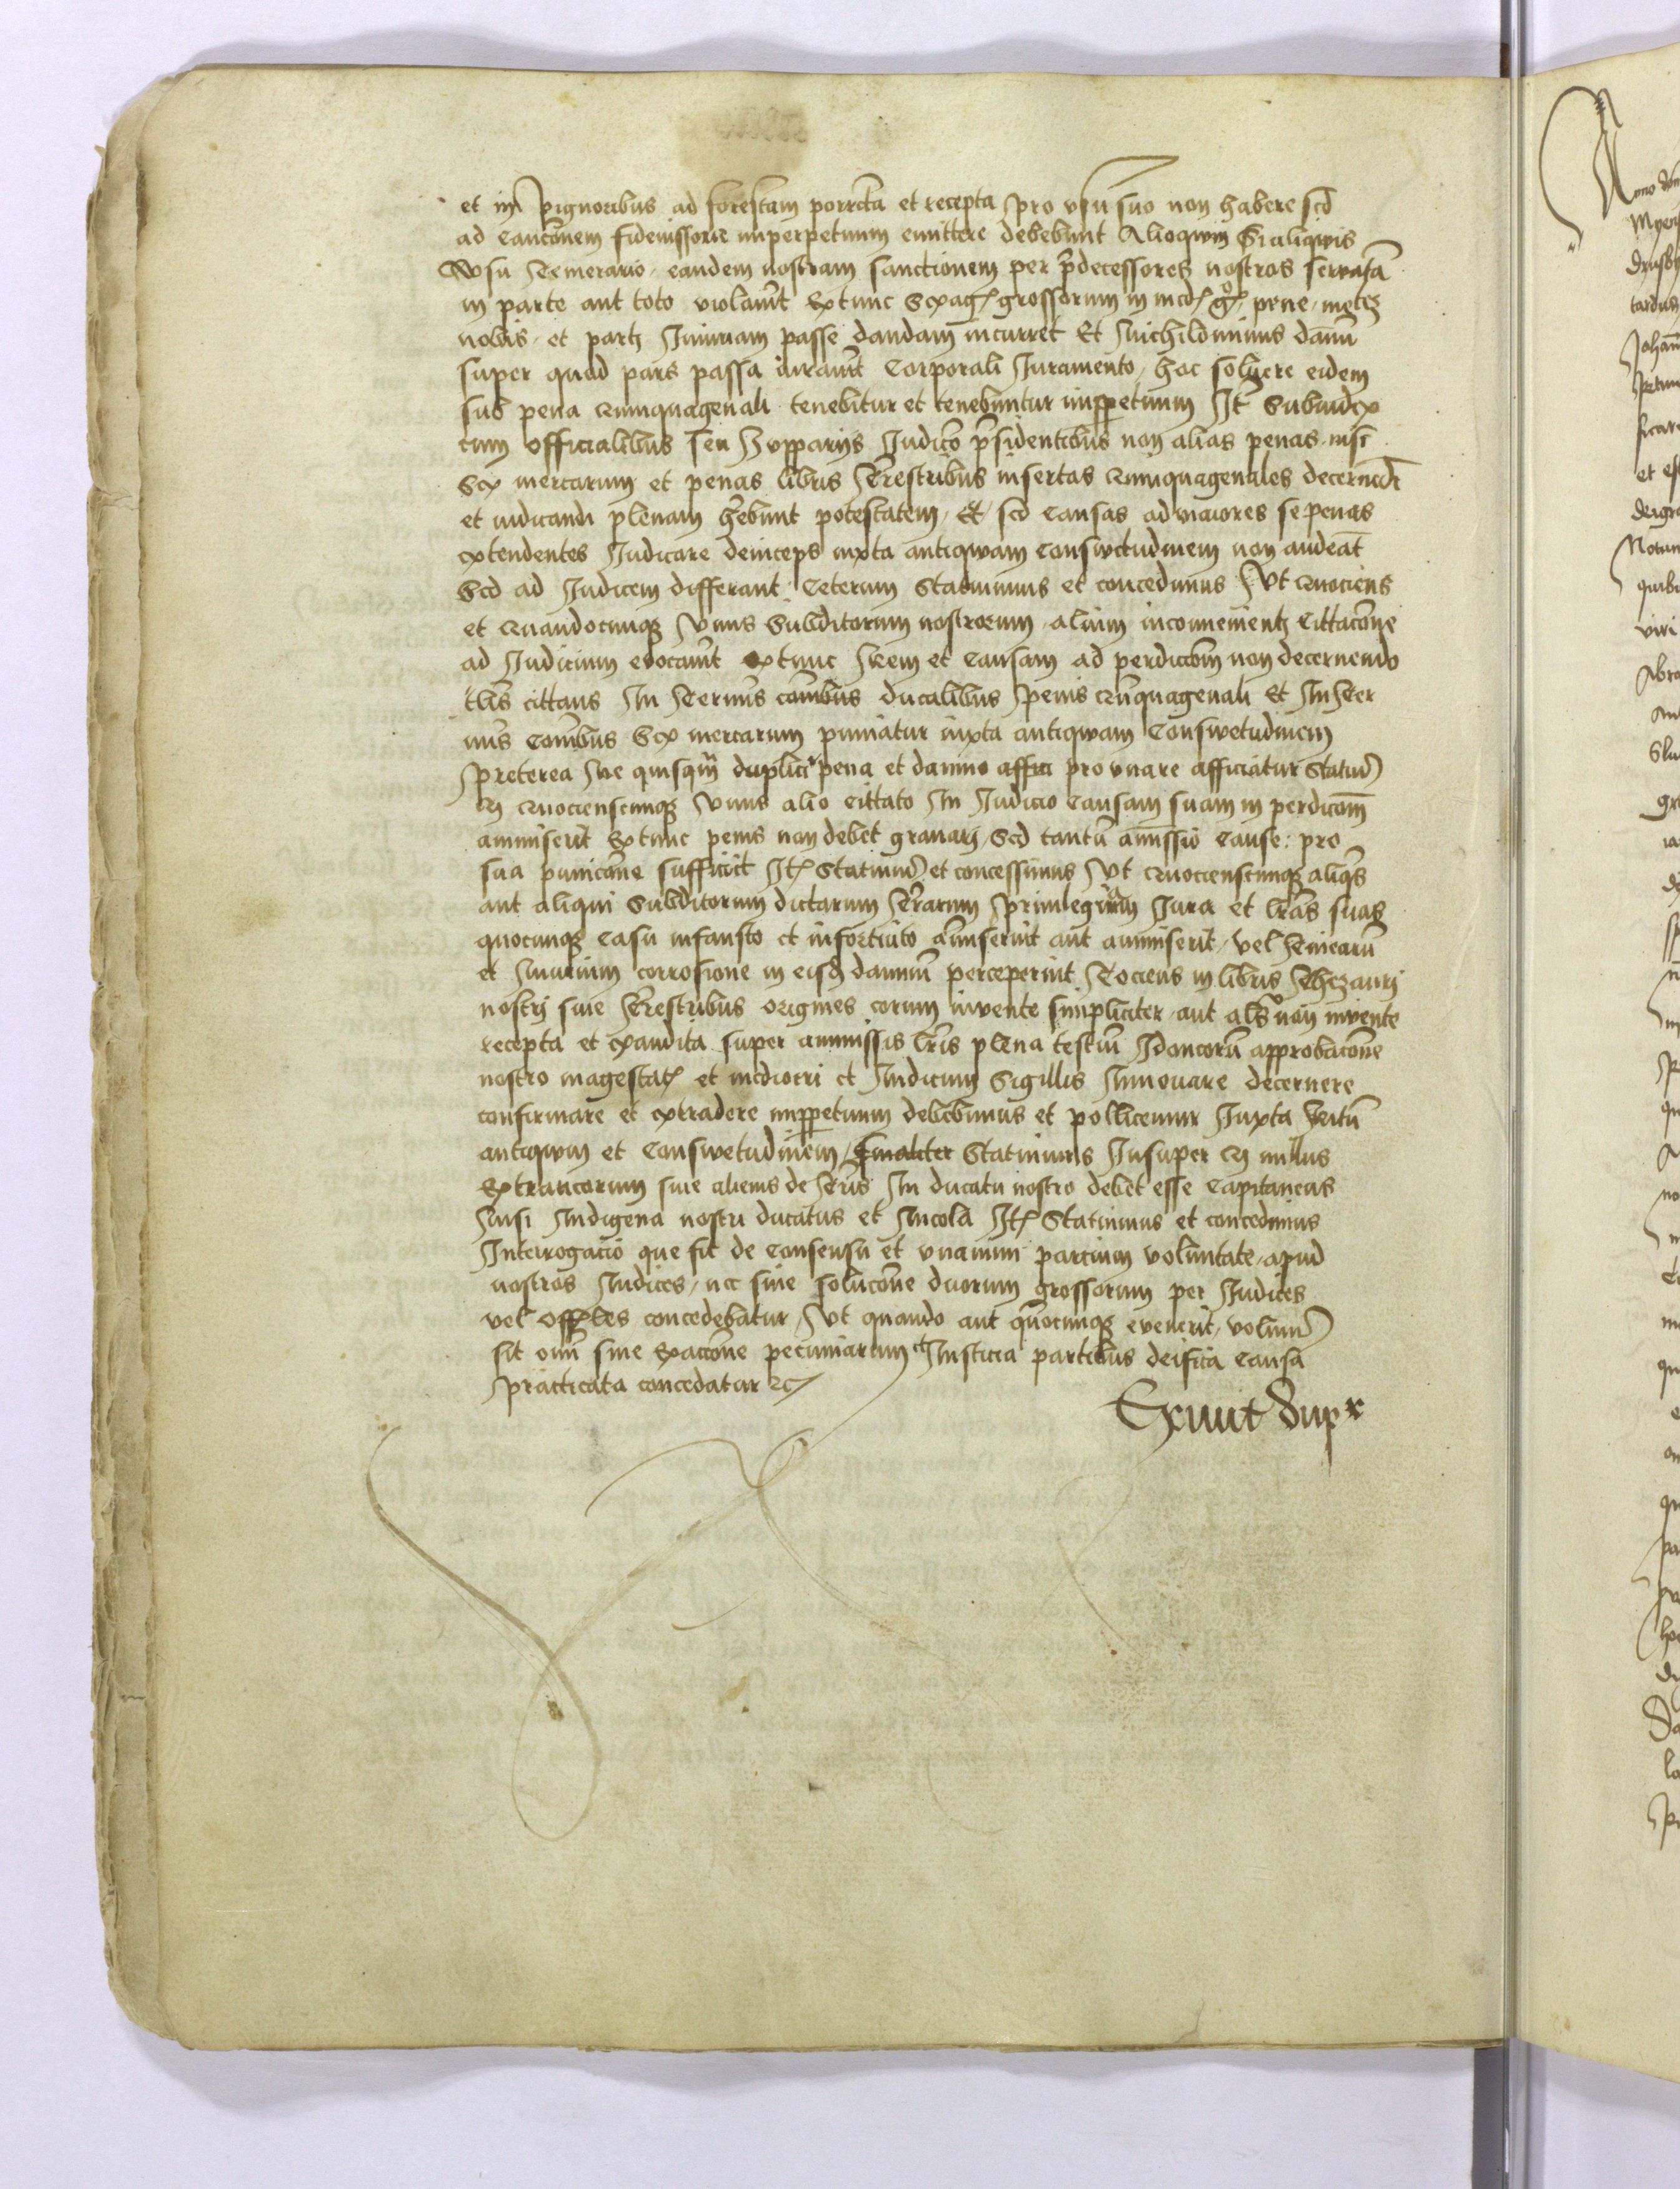 et in pignoribus ad forestam porrecta et recepta pro vsu suo non habere sed
ad caucōnem fideiussorie imperpetuum emittere debebunt Alioqwin Si aliqwis
Awsu temerario eandem nostram sanctionem per p̄decessores nostros seruatā
in parte aut toto violauīt Extunc Sexag grossorum in med gͦ pene
nobis et parti Iniuriam passe dandam incurret Et Nichilominus dānū
super quod pars passa iurauīt Corporali Iuramento hoc soluere eidem
sub pena quinquagenali tenebitur et tenebuntur imppetuum Itē Subiudex
cum officialibus seu Zuppariis Iudicō p̄sidentibus non alias penas nisi
Sex mercarum et penas libris Terrestribus insertas quinquagenales decernēdi
et iudicandi plenam h̄ebunt potestatem Et sed causas ad maiores se penas
extendentes Iudicare deinceps iuxta antiqwam conswetudinem non audeāt
Sed ad Iudicem differant Ceterum Statuimus et concedimus Vt quociens
et quandocunqz Vnus Subditorum nostrorum alium inconuenienti cittacōne
ad Iudicium euocauīt extunc Rem et causam ad perdicōm non decernendo
tlis cittans In Terminis cōmībus ducalibus penis qūquagenali Et In Ter
nis comībus Sex mercarum puniatur iuxta antiqwam Conswetudinem
Preterea Ne quisqm̄ duplici pena et damno affici pro vna re afficiatur Statuim̄
qz quocienscunqz Vnus alio cittato In Iudicio causam suam in perdicom̄
ammiserit Extunc penis non debet grauari Sed tantū amissio cause pro
sua punicōne sufficit Itē Statuim̄ et concessimus Vt quocienscunqz aliqs
aut aliqui Subditorum dictarum Terrarum Priuilegiorum Iura et lr̄as suas
quocunqz casu infausto et infortuito āmiserint aut ammiserit vel tinearū
et Murium corrosione in eisdem damnū perceperint Tociens in libris Thezauri
nostri siue Terrestribus origines eorum invente simpliciter aut als̄ non invente
recepta et exaudita super ammissis lr̄is plena testiū Idoneorū approbacōne
nostro magestati et mediocri et Iudicum Sigillis Innouare decernere
confirmare et extradere imppetuum debebimus et pollicemur Iuxta Ritū
antiqwum et Conswetudinem finaliter Statuimus Insuper qz nullus
Extraneorum siue alienis de Terris In ducatu nostro debet esse Capitaneus
Nisi Indigena nostri ducatus et Incola Itē Statuimus et concedimus
Interrogacio que fit de consensu et vnanimi parcium voluntate apud
nostros Iudices nec sine solucōne duorum grossorum per Iudices
vel offles concedebatur Vt quando aut qn̄ocunqz evenerit volum̄
sit oīm sine Exaccōne pecuniarum et Iusticia partibus deifica causa
practicata concedatur etc
Exiuit dupx